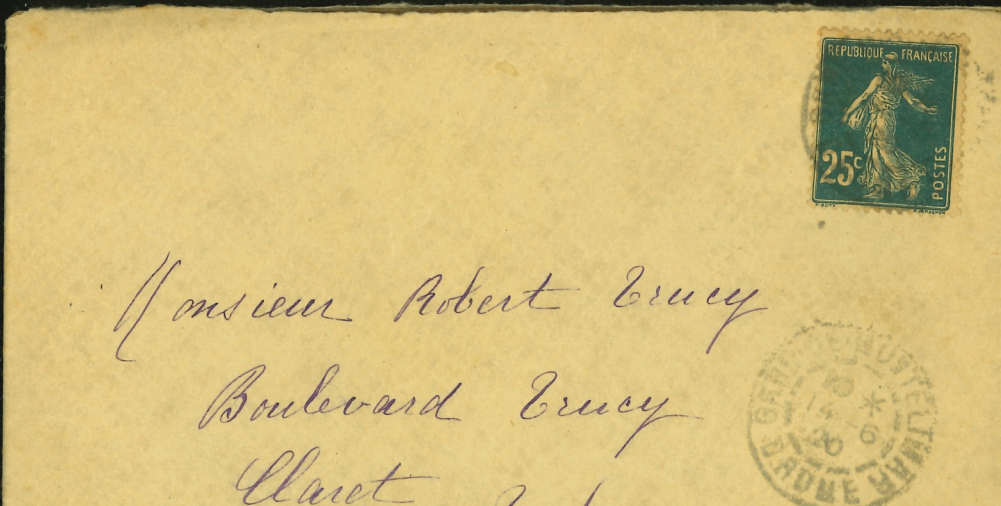 RÉPUBLIQUE FRANÇAISE
25c
POSTES
Monsieur Robert Trucy
Boulevard Trucy
Claret
GARE DE MONTELIMAR
DROME
14 6
20